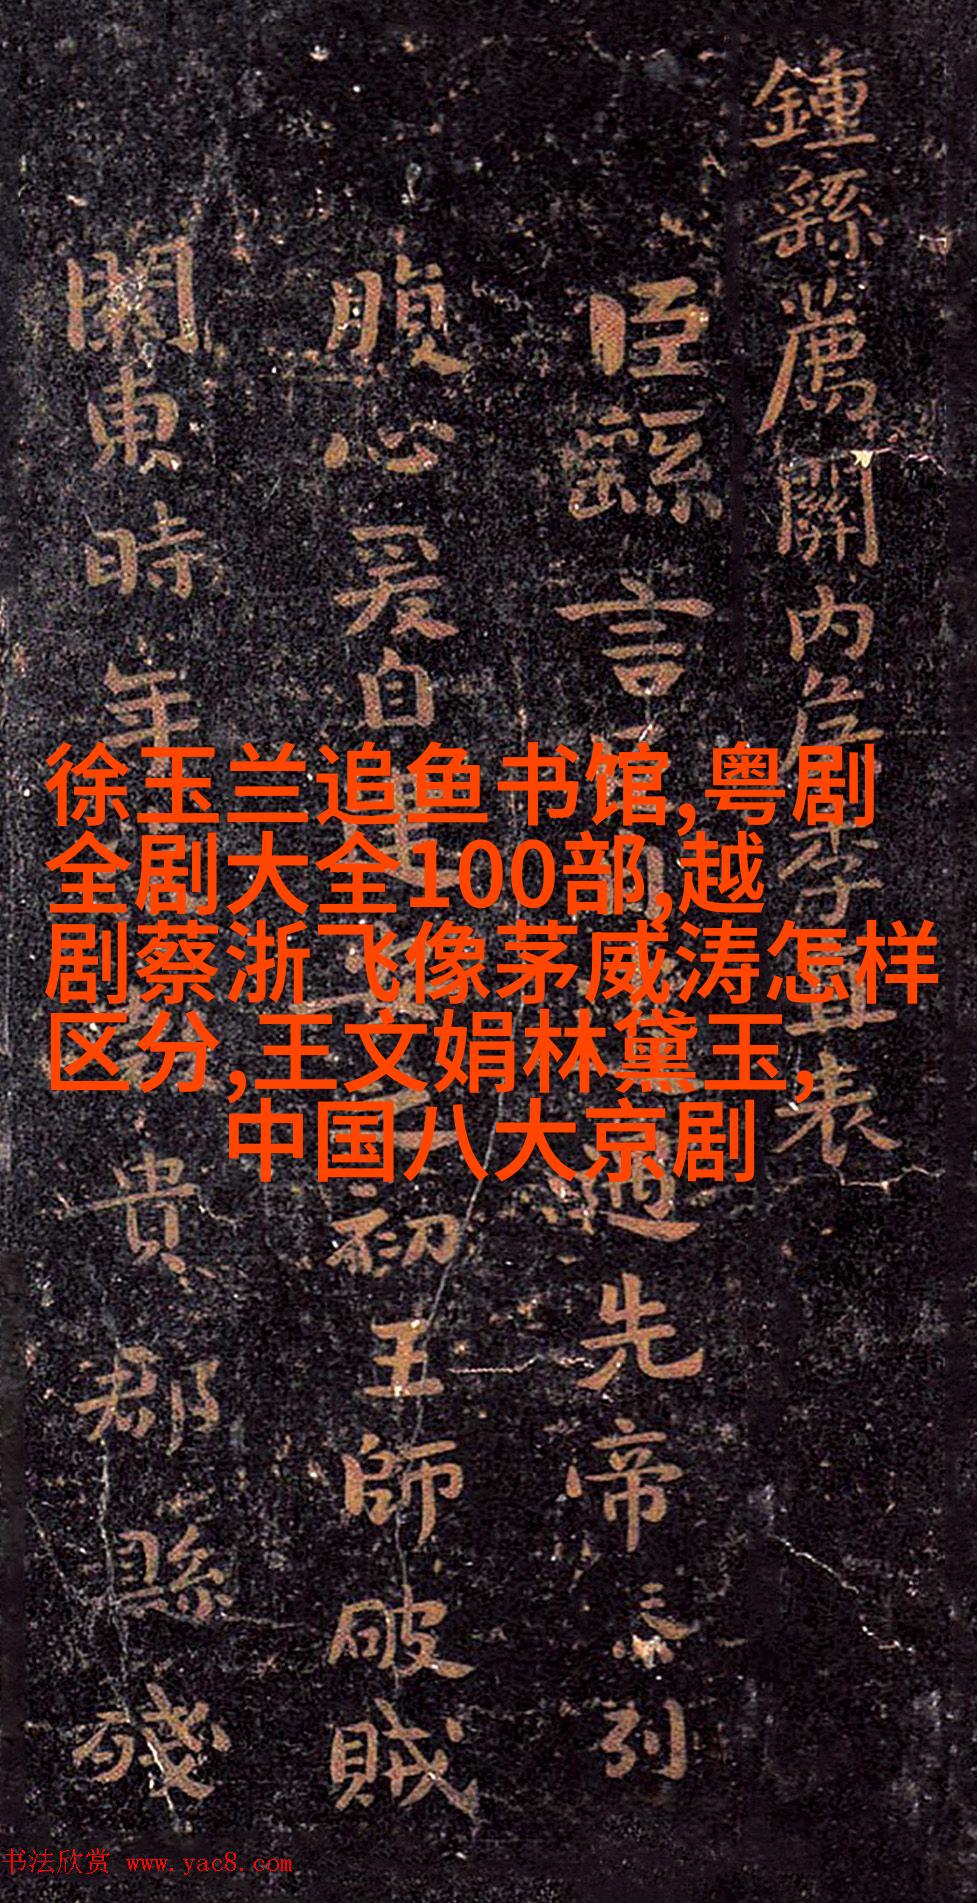 鍾繇薦關内侯季直表
臣繇言 遇先帝忝列
腹心爰自建 之初王師破賊
關東時年 貴郡縣殘
徐玉兰追鱼书馆,粤剧
全剧大全100部,越
剧蔡浙飞像茅威涛怎样
区分,王文娟林黛玉,
中国八大京剧
书法欣赏 www.yac8.com